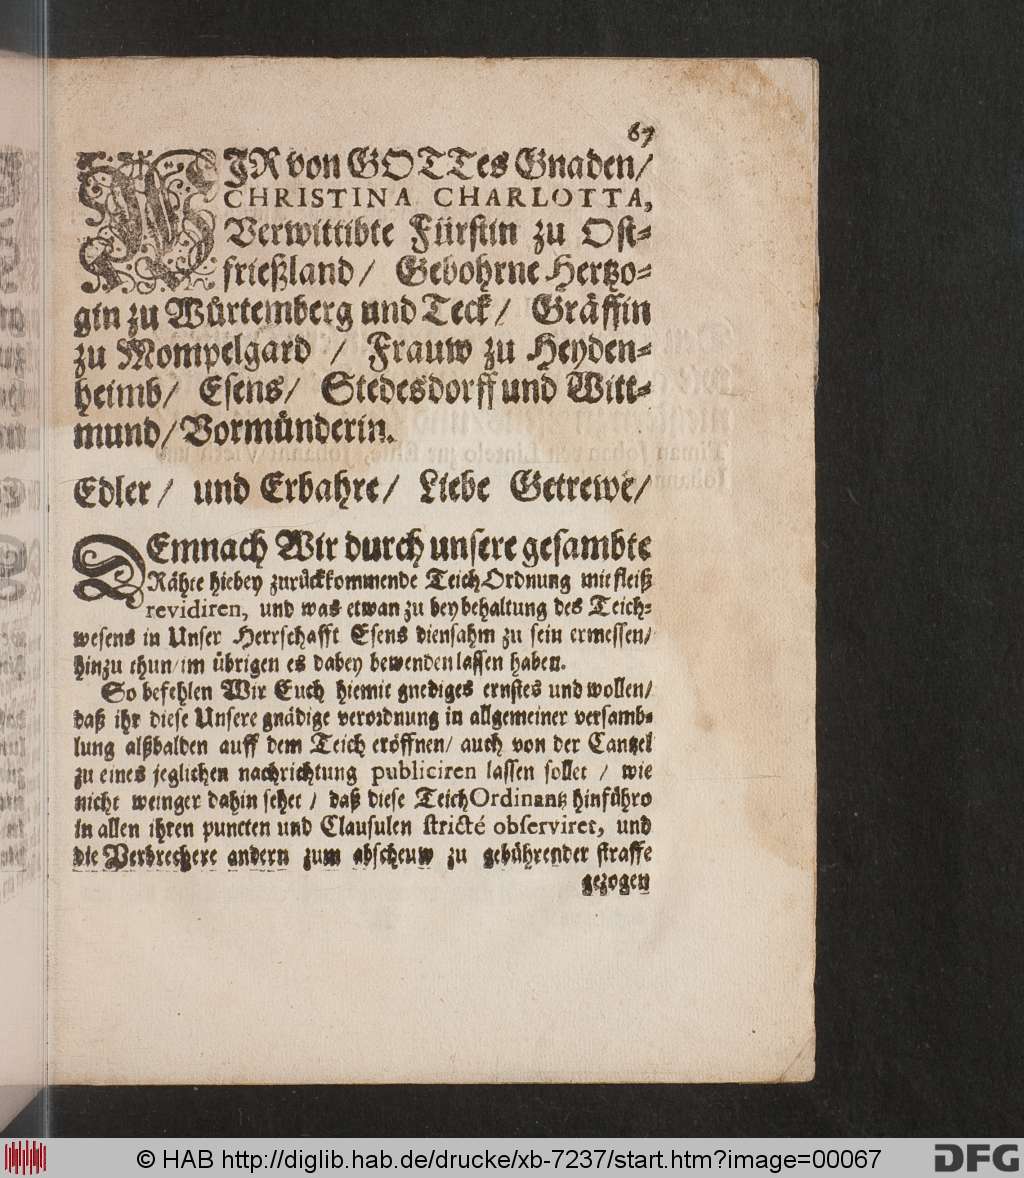 67
WIR von GOTTes Gnaden/
CHRISTINA CHARLOTTA,
Verwittibte Fürstin zu Ost-
frießland/ Gebohrne Hertzo-
gin zu Würtemberg und Teck/ Gräffin
zu Mompelgard / Frauw zu Heyden-
heimb/ Esens/ Stedesdorff und Witt-
mund/ Vormünderin.
Edler/ und Erbahre/ Liebe Getrewe/
DEmnach Wir durch unsere gesambte
Rähte hiebey zurückkommende Teich Ordnung mit fleiß
revidiren, und was etwan zu beybehaltung des Teich-
wesens in Unser Herrschafft Esens diensahm zu sein ermessen/
hinzu thun/ im übrigen es dabey bewenden lassen haben.
So befehlen Wir Euch hiemit gnediges ernstes und wollen/
daß ihr diese Unsere gnädige verordnung in allgemeiner versamb-
lung alßbalden auff dem Teich eröffnen/ auch von der Cantzel
zu eines jeglichen nachrichtung publiciren lassen sollet / wie
nicht weinger dahin sehet / daß diese Teich Ordinantz hinführo
in allen ihren puncten und Clausulen stricté observiret, und
die Verbrechere andern zum abscheuw zu gebührender straffe
gezogen
© HAB http://diglib.hab.de/drucke/xb-7237/start.htm?image=00067
DFG